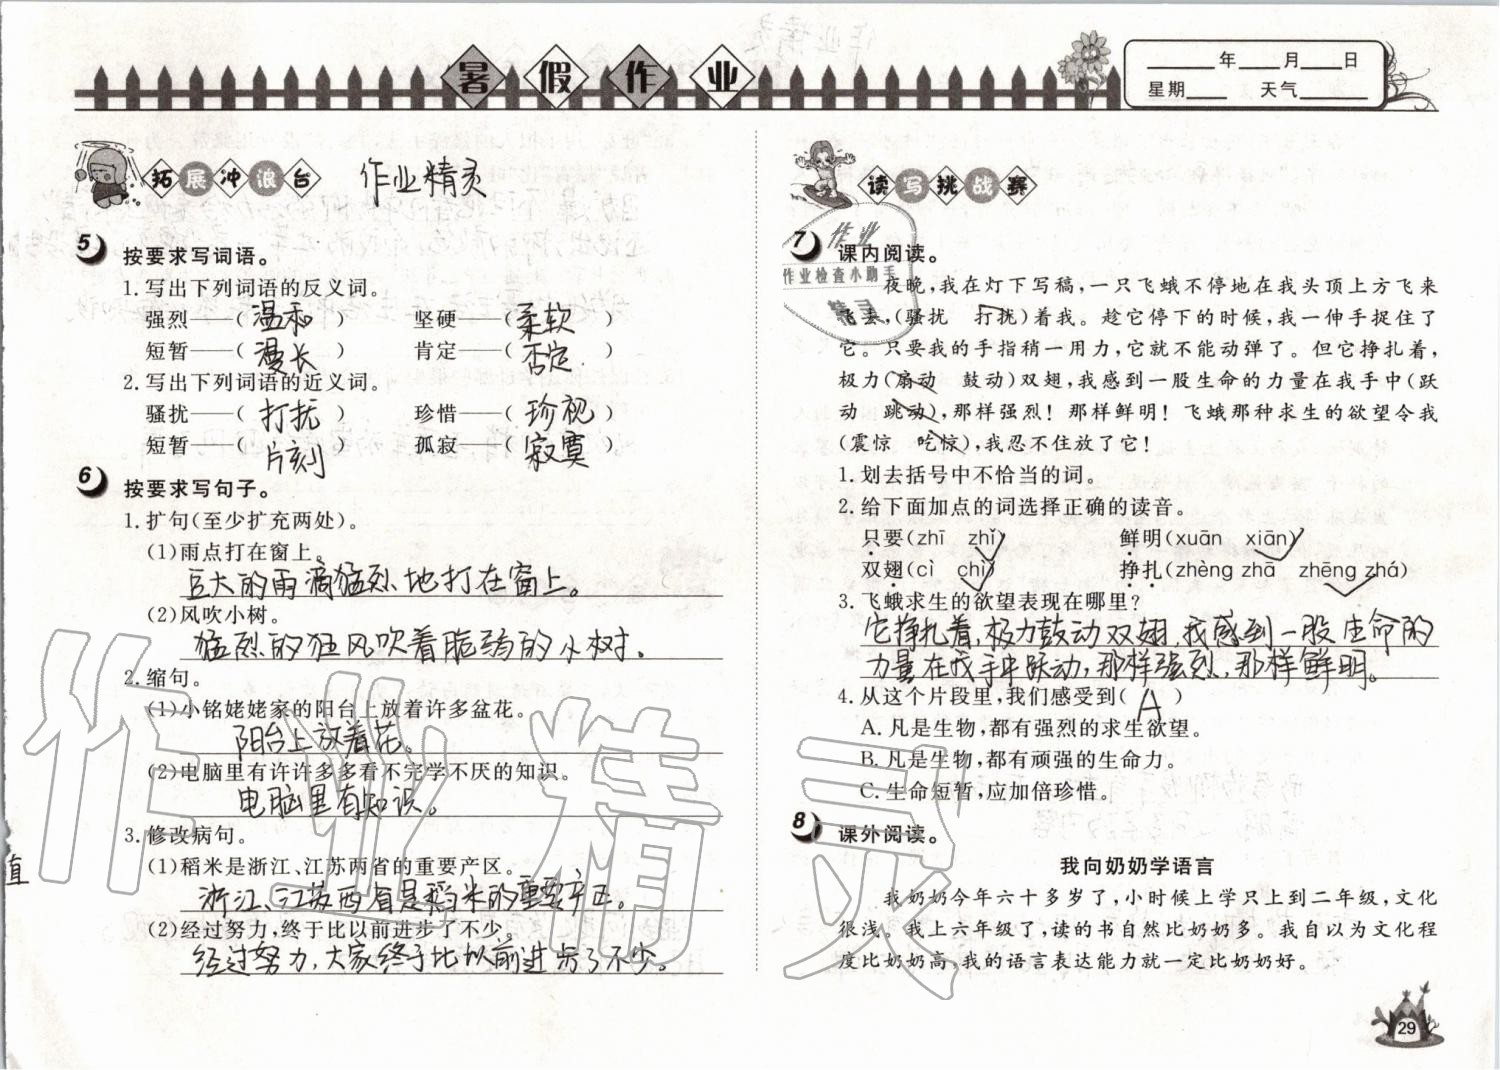 暑假作业
____年____月____日
星期____ 天气____
拓展冲浪台 作业精灵
5 按要求写词语。
1.写出下列词语的反义词。
强烈——(温和) 坚硬——(柔软)
短暂——(漫长) 肯定——(否定)
2.写出下列词语的近义词。
骚扰——(打扰) 珍惜——(珍视)
短暂——(片刻) 孤寂——(寂寞)
6 按要求写句子。
1.扩句(至少扩充两处)。
(1)雨点打在窗上。
巨大的雨滴猛烈地打在窗上。
(2)风吹小树。
猛烈的狂风吹着脆弱的小树.
2.缩句。
(1)小铭姥姥家的阳台上放着许多盆花。
阳台上放着花。
(2)电脑里有许许多多看不完学不厌的知识。
电脑里有知识。
3.修改病句。
(1)稻米是浙江、江苏两省的重要产区。
浙江、江苏两省是稻米的重要产区。
(2)经过努力,终于比以前进步了不少。
经过努力,大家终于比以前进步了不少。
读写挑战赛
7 课内阅读。
夜晚,我在灯下写稿,一只飞蛾不停地在我头顶上方飞来
飞去,(骚扰 打扰)着我。趁它停下的时候,我一伸手捉住了
它。只要我的手指稍一用力,它就不能动弹了。但它挣扎着,
极力(扇动 鼓动)双翅,我感到一股生命的力量在我手中(跃
动 跳动),那样强烈!那样鲜明!飞蛾那种求生的欲望令我
(震惊 吃惊),我忍不住放了它!
1.划去括号中不恰当的词。
2.给下面加点的词选择正确的读音。
只要(zhī zhǐ) 鲜明(xuān xiān)
双翅(cì chì) 挣扎(zhèng zhā zhēng zhá)
3.飞蛾求生的欲望表现在哪里?
它挣扎着,极力鼓动双翅,我感到一股生命的
力量在我手中跃动,那样强烈,那样鲜明。
4.从这个片段里,我们感受到( A )
A.凡是生物,都有强烈的求生欲望。
B.凡是生物,都有顽强的生命力。
C.生命短暂,应加倍珍惜。
8 课外阅读。
我向奶奶学语言
我奶奶今年六十多岁了,小时候上学只上到二年级,文化
很浅。我上六年级了,读的书自然比奶奶多。我自以为文化程
度比奶奶高,我的语言表达能力就一定比奶奶好。
29
作业
作业检查小助手
精灵
作业精灵
直